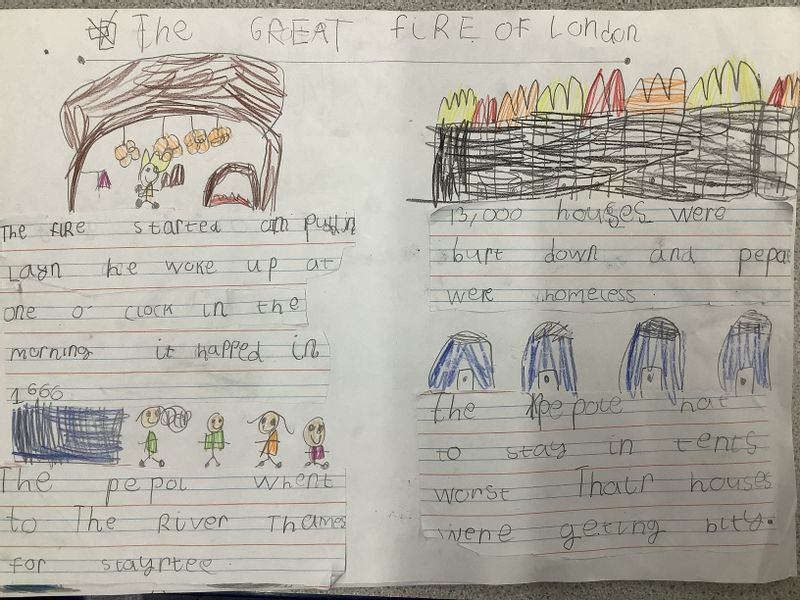 The GREAT fiRE OF London
The fiRE started on puttin
Layn he woke up at
one o clock in the
morning it happed in
1666
The pepol whent
to The River Thames
for stayrtee
13,000 houses were
burt down and pepol
were homeless
the pepole hat
to stay in tents
worst Thair houses
were geting bilty.